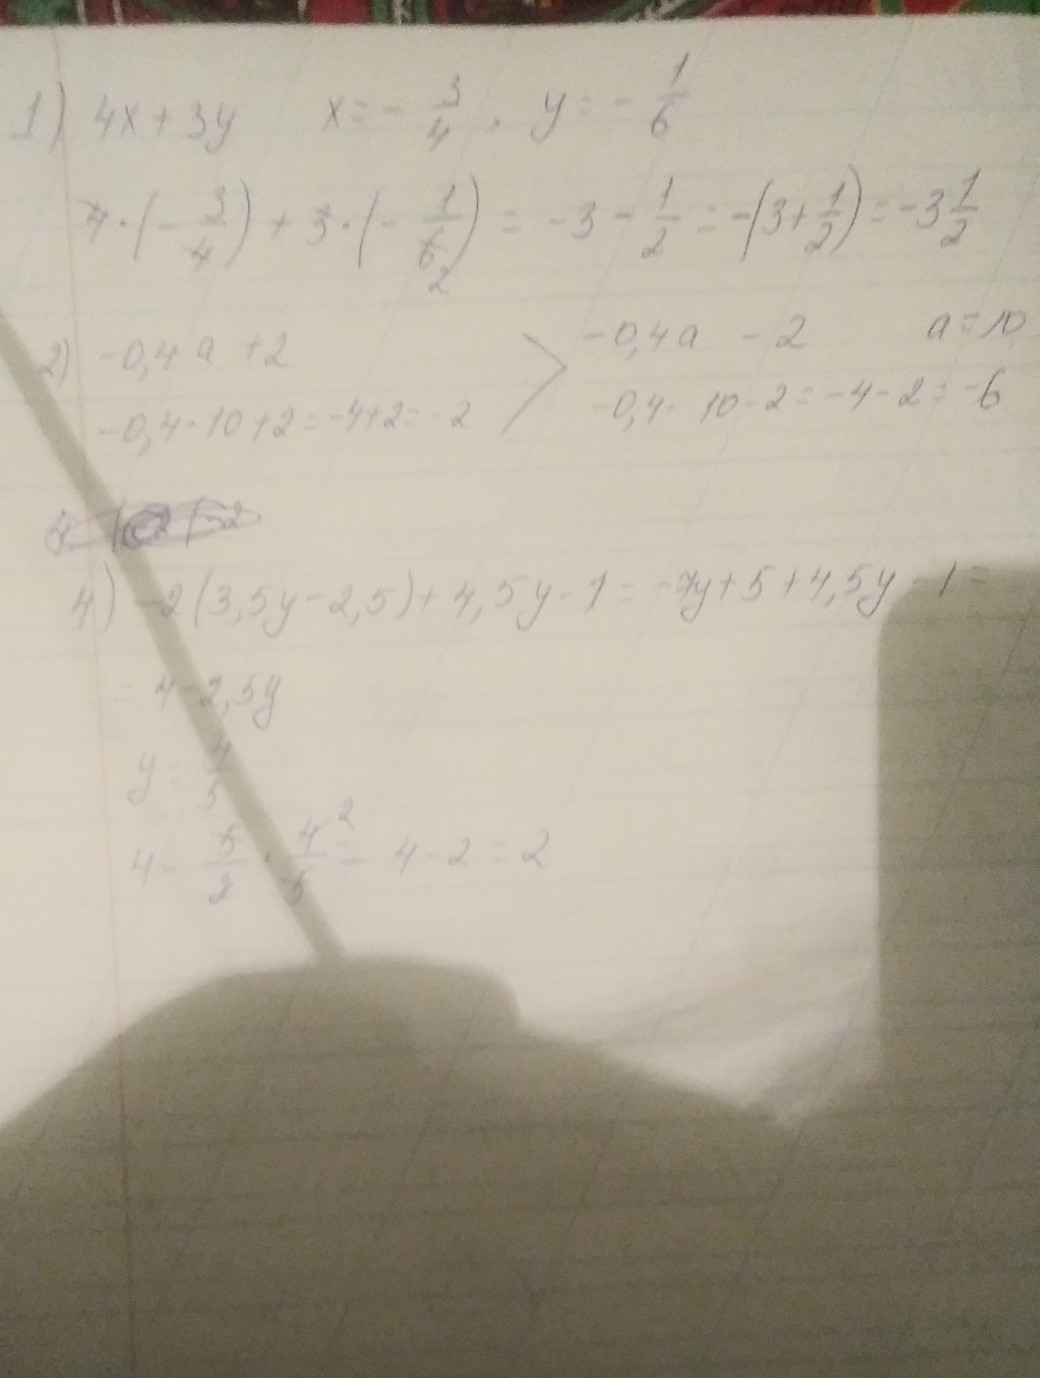 1) 4x + 3y x = - 3/4, y = - 1/6
4 · (- 3/4) + 3 · (- 1/6) 2 = -3 - 1/2 = -(3 + 1/2) = -3 1/2
2) -0,4a + 2 > -0,4a - 2 a = 10
-0,4 · 10 + 2 = -4 + 2 = -2 -0,4 · 10 - 2 = -4 - 2 = -6
4) -2(3,5y - 2,5) + 4,5y - 1 = -7y + 5 + 4,5y - 1 =
= 4 - 2,5y
y = 4/5
4 - 5/2 · 4/5 2 = 4 - 2 = 2